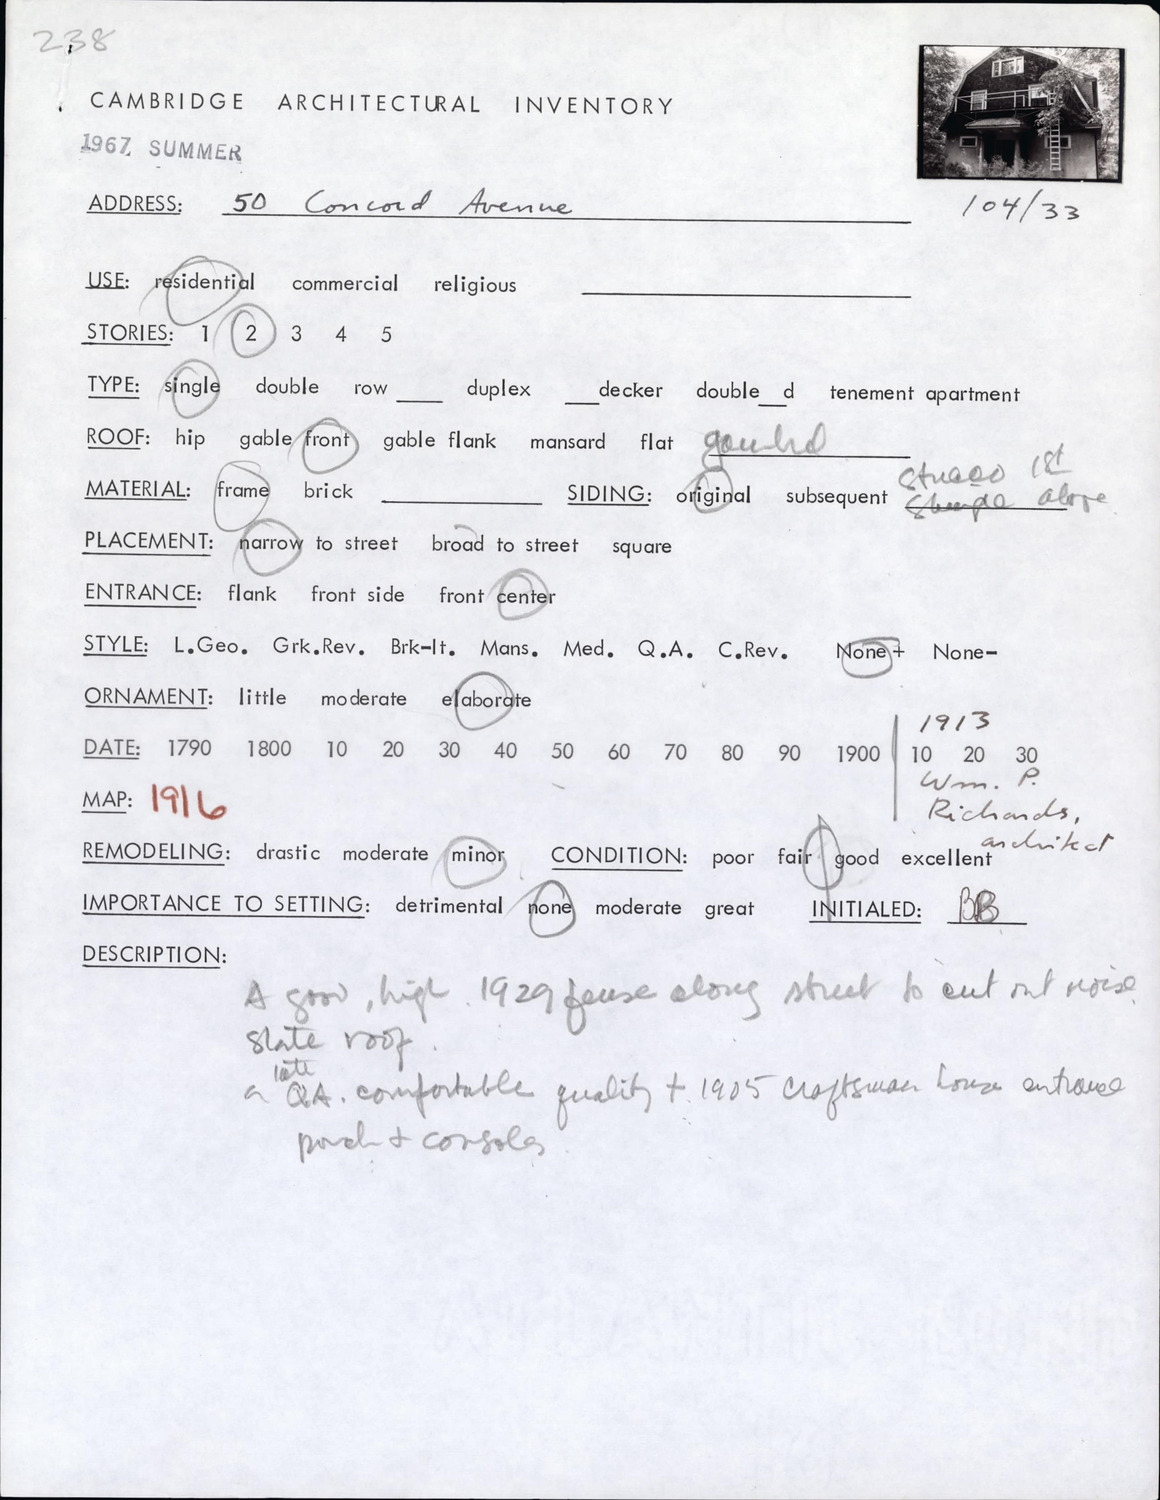 238
CAMBRIDGE ARCHITECTURAL INVENTORY
1967 SUMMER
ADDRESS: 50 Concord Avenue
104/33
USE: residential commercial religious
STORIES: 1 2 3 4 5
TYPE: single double row ____ duplex ___decker double__d tenement apartment
ROOF: hip gable front gable flank mansard flat
stucco 1st
MATERIAL: frame brick SIDING: original subsequent Shingle above
PLACEMENT: narrow to street broad to street square
ENTRANCE: flank front side front center
STYLE: L.Geo. Grk.Rev. Brk-It. Mans. Med. Q.A. C.Rev. None+ None-
ORNAMENT: little moderate elaborate
1913
DATE: 1790 1800 10 20 30 40 50 60 70 80 90 1900 10 20 30
Wm. P.
MAP: 1916
Richards,
architect
REMODELING: drastic moderate minor CONDITION: poor fair good excellent
IMPORTANCE TO SETTING: detrimental none moderate great INITIALED: BB
DESCRIPTION:
A good, high 1929 fense along street to cut out noise.
Slate roof.
late
a Q.A. comfortable quality + 1905 craftsman house entrance
porch + consoles